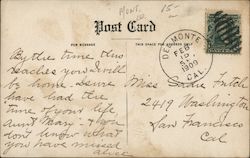 MONT.
15-
Post Card
FOR MESSAGE
THIS SPACE FOR ADDRESS ONLY
DEL MONTE
FEB
12
1909
CAL.
By the time this
reaches you I will
be home. Sure
have had the
time of your life
Aunt Mary - You
don't know what
you have missed
Miss Sadie Fitch
2419 Washington
San Francisco
Cal